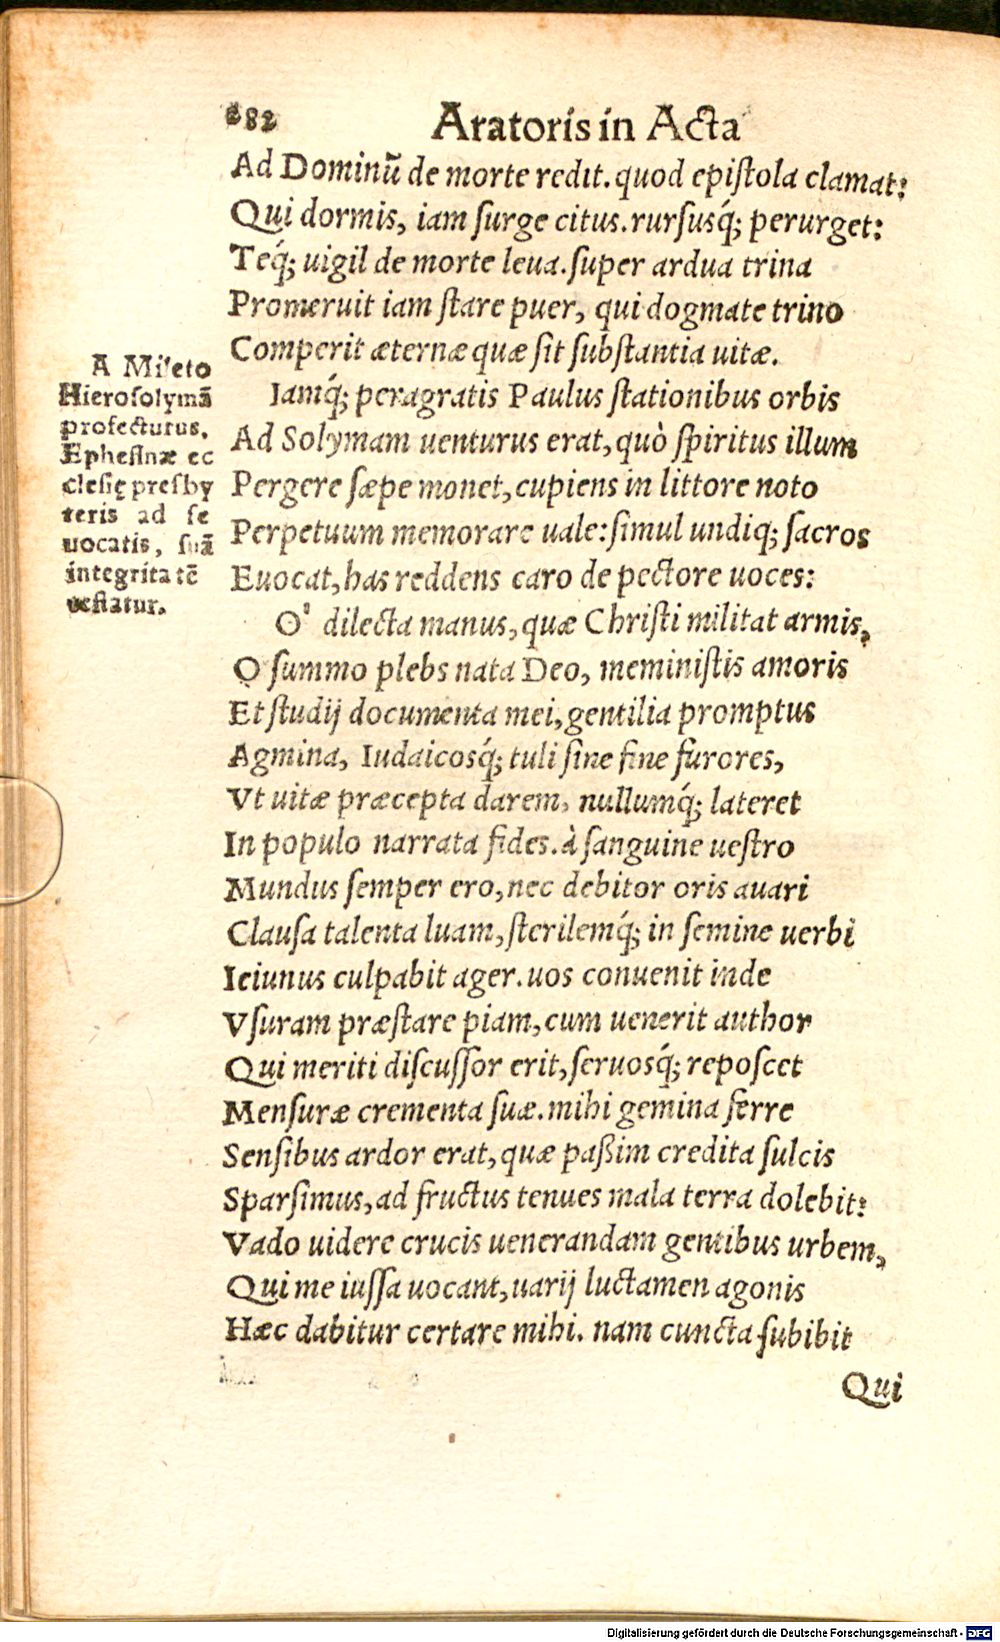 282 Aratoris in Acta
Ad Dominū de morte redit. quod epiſtola clamat:
Qui dormis, iam ſurge citus. rurſusq́; perurget:
Teq́; uigil de morte leua. ſuper ardua trina
Promeruit iam ſtare puer, qui dogmate trino
Comperit æternæ quæ ſit ſubſtantia uitæ.
A Mileto
Hieroſolymā
profecturus,
Epheſinæ ec
cleſię preſby
teris ad ſe
uocatis, ſuā
integritatē
teſtatur.
Iamq́; peragratis Paulus ſtationibus orbis
Ad Solymam uenturus erat, quò ſpiritus illum
Pergere ſæpe monet, cupiens in littore noto
Perpetuum memorare uale: ſimul undiq; ſacros
Euocat, has reddens caro de pectore uoces:
O' dilecta manus, quæ Chriſti militat armis,
O ſummo plebs nata Deo, meminiſtis amoris
Et ſtudij documenta mei, gentilia promptus
Agmina, Iudaicosq́; tuli ſine fine furores,
Vt uitæ præcepta darem, nullumq́; lateret
In populo narrata fides. à ſanguine ueſtro
Mundus ſemper ero, nec debitor oris auari
Clauſa talenta luam, ſterilemq́; in ſemine uerbi
Ieiunus culpabit ager. uos conuenit inde
Vſuram præſtare piam, cum uenerit author
Qui meriti diſcuſſor erit, ſeruosq́; repoſcet
Menſuræ crementa ſuæ. mihi gemina ferre
Senſibus ardor erat, quæ paßim credita ſulcis
Sparſimus, ad fructus tenues mala terra dolebit:
Vado uidere crucis uenerandam gentibus urbem,
Qui me iuſſa uocant, uarij luctamen agonis
Hæc dabitur certare mihi. nam cuncta ſubibit
Qui
Digitalisierung gefördert durch die Deutsche Forschungsgemeinschaft - DFG